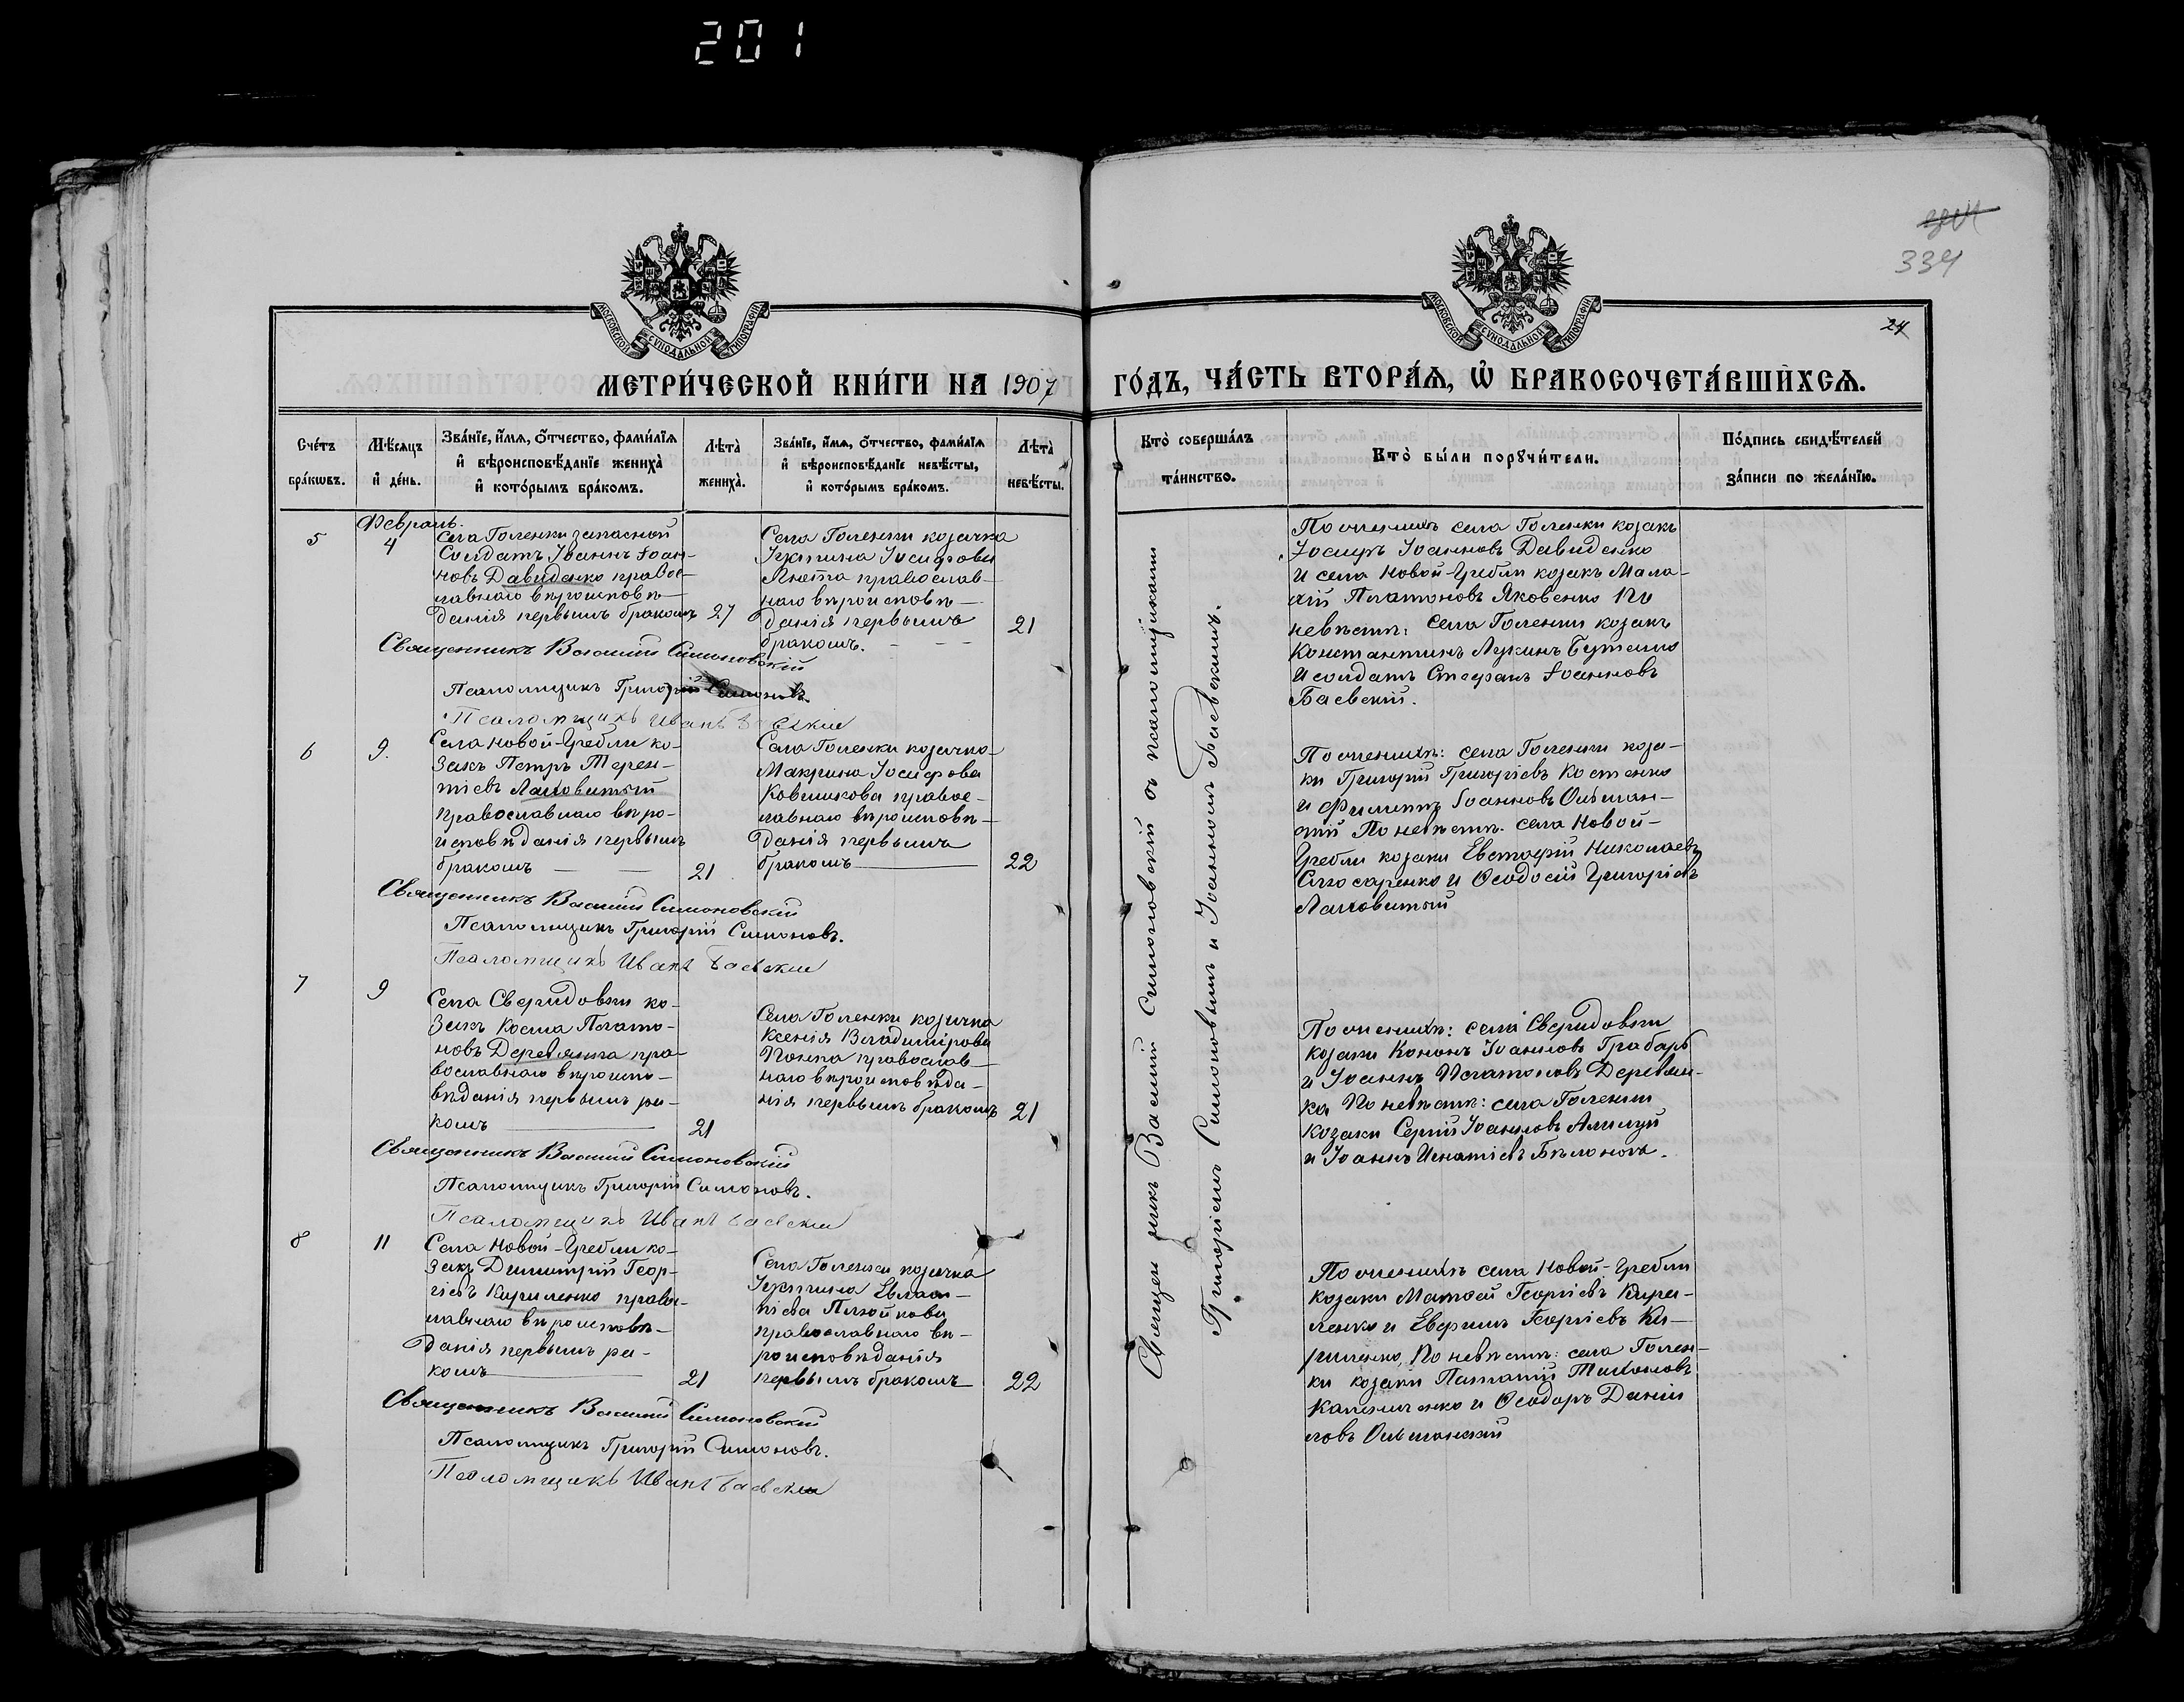 201
334
24
МОСКОВСКОЙ СУНОДАЛЬНОЙ ТИПОГРАФІИ
МОСКОВСКОЙ СУНОДАЛЬНОЙ ТИПОГРАФІИ
МЕТРИ́ЧЕСКОЙ КНИ́ГИ НА 1907 ГО́ДЪ, ЧА́СТЬ ВТОРА́Ѧ, Ѽ БРАКОСОЧЕТА́ВШИХСѦ.
Сче́тъ бра́кѡвъ.
Мѣ́сяцъ и҆ де́нь.
Зва́нїе, и҆́мѧ, ѻ҆́тчество, фами́лїѧ
и҆ вѣроисповѣ́данїе жениха̀
и҆ кото́рымъ бра́комъ.
Лѣта̀ жениха̀.
Зва́нїе, и҆́мѧ, ѻ҆́тчество, фами́лїѧ
и҆ вѣроисповѣ́данїе невѣ́сты,
и҆ кото́рымъ бра́комъ.
Лѣта̀ невѣ́сты.
Кто̀ соверша́лъ та́инство.
Кто̀ бы́ли порꙋчи́тели.
По́дпись свидѣ́телей за́писи по жела́нїю.
5
Февраль.
4
Села Голенки запасной
Солдатъ Іоаннъ Іоан-
новъ Давиденко право-
славнаго вѣроисповѣ-
данія первымъ бракомъ
27
Села Голенки козачка
Іустина Іосифова
православ-
наго вѣроисповѣ-
данія первымъ
бракомъ.
21
По женихѣ села Голенки козакъ
Іосифъ Іоанновъ Давиденко
и села Новой-Гребли козакъ Мала-
хій Платоновъ Яковенко По
невѣстѣ: села Голенки козакъ
Константинъ Лукинъ Бутенко
и солдатъ Стефанъ Іоанновъ
Баевскій.
Священникъ Василій Симоновскій
Псаломщикъ Григорій Симоновъ.
Псаломщикъ Иванъ
6
9.
Села Новой-Гребли ко-
закъ Петръ Терен-
тіевъ Лановитый
православнаго вѣро-
исповѣданія первымъ
бракомъ
21
Села Голенки козачка
Макрина Іосифова
Ковшикова право-
славнаго вѣроисповѣ-
данія первымъ
бракомъ
22
По женихѣ: села Голенки коза-
ки Григорій Григоріевъ Костенко
и Филиппъ Іоанновъ Ольшан-
скій По невѣстѣ. села Новой-
Гребли козаки Евстафій Николаевъ
Слюсаренко и Ѳеодосій Григоріевъ
Лановитый
Священникъ Василій Симоновскій
Псаломщикъ Григорій Симоновъ.
Псаломщикъ Иванъ Баевскій
7
9
Села Свиридовки ко-
закъ Косма Плато-
новъ Деревянка пра-
вославнаго вѣроиспо-
вѣданія первымъ ра-
комъ
21
Села Голенки козачка
Ксенія Владимірова
православ-
наго вѣроисповѣда-
нія первымъ бракомъ
21
По женихѣ: села Свиридовки
козаки Кононъ Іоанновъ Грабарь
и Іоаннъ Платоновъ Деревян-
ка По невѣстѣ: села Голенки
козаки Сергій Іоанновъ
и Іоаннъ Игнатіевъ
Священникъ Василій Симоновскій
Псаломщикъ Григорій Симоновъ.
Псаломщикъ Иванъ Баевскій
8
11
Села Новой-Гребли ко-
закъ Димитрій Геор-
гіевъ Кириленко право-
славнаго вѣроисповѣ-
данія первымъ ра-
комъ
21
Села Голенки козачка
Іустина Евлам-
піева
православнаго вѣ-
роисповѣданія
первымъ бракомъ
22
По женихѣ села Новой-Гребли
козаки Матѳей Георгіевъ Кири-
ленко и Евфимъ Георгіевъ Ки-
риленко, По невѣстѣ: села Голен-
ки козаки Тихоновъ
и Ѳеодоръ Даніи
ловъ Ольшанскій
Священникъ Василій Симоновскій
Псаломщикъ Григорій Симоновъ.
Псаломщикъ Иванъ Баевскій
Священникъ Василій Симоновскій съ псаломщиками
Григоріемъ Симоновымъ и Іоанномъ Баевскимъ.